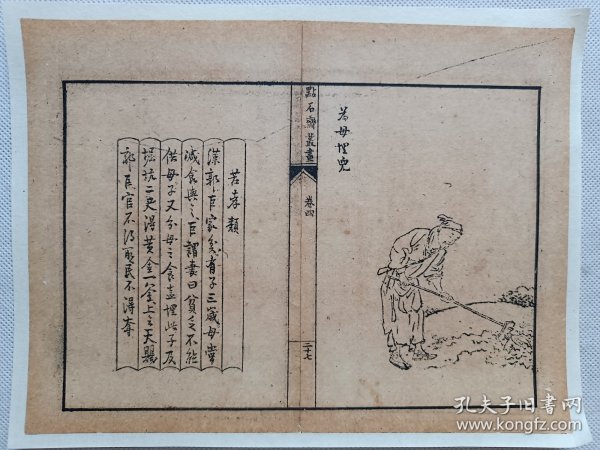 為母埋兒
點石齋叢畫
卷四
二十七
苦孝類
漢郭巨家貧有子三歲母常
減食與之巨謂妻曰貧乏不能
供母子又分母之食盍埋此子及
堀坑二尺得黄金一釜上云天賜
郭巨官不得取民不得奪
孔夫子旧书网
www.kongfz.com